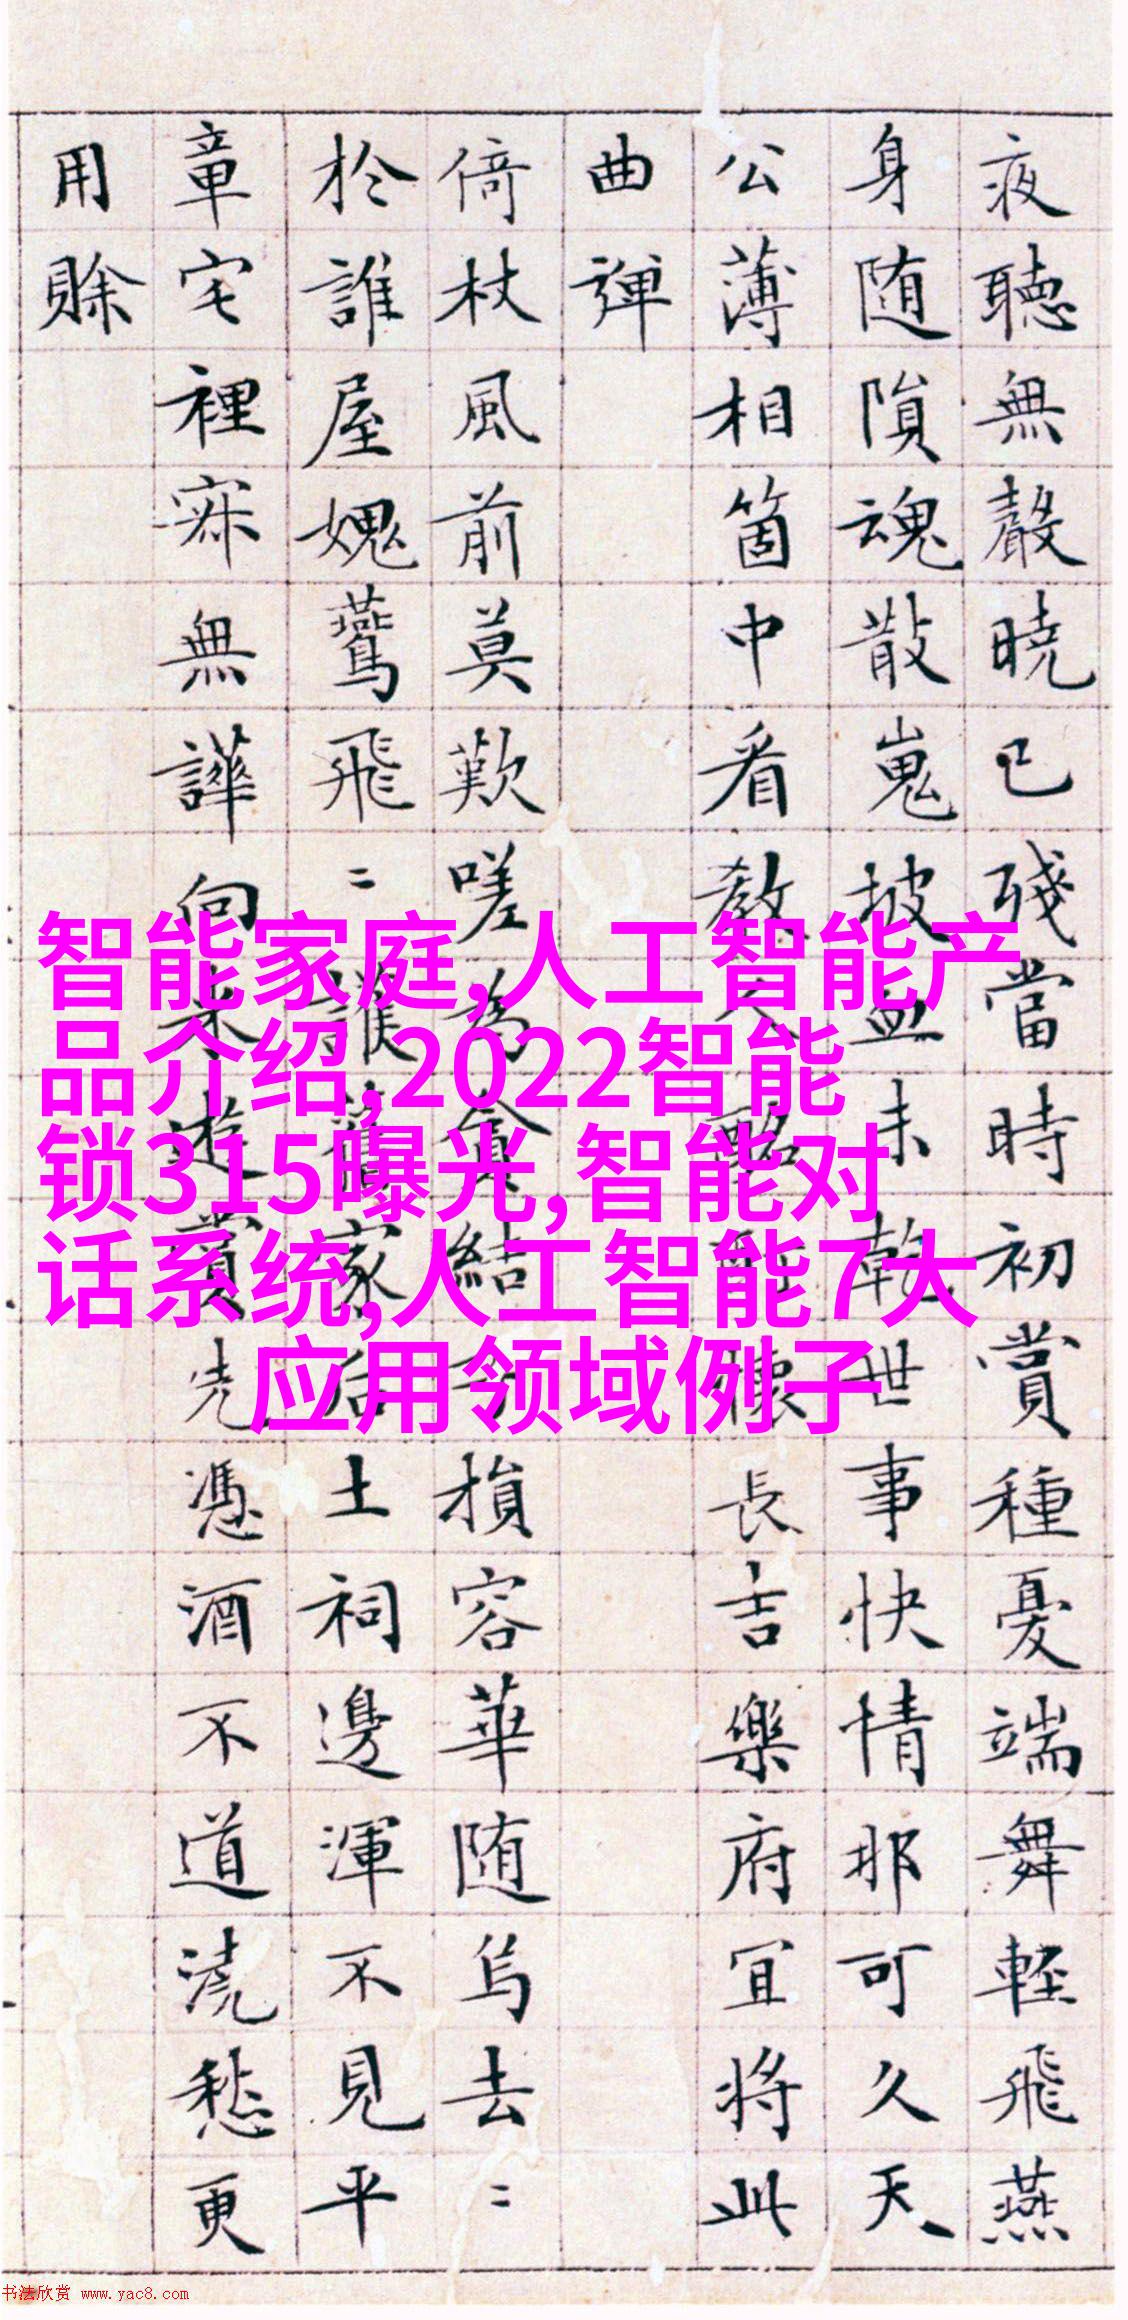 夜聽無聲曉已殘當時初賞種憂端舞輕飛燕
身隨隕魂散嵬坡血未乾世事快情那可久天
公薄相箇中看教長吉樂府宜將此
曲彈
倚杖風前莫歎嗟為結損容華随烏去〻
於誰屋媿鶯飛〻誰家后土祠邊渾不見平
章宅裡寂無譁向來遊賞先憑酒不道澆愁更
用賒
智能家庭,人工智能产
品介绍,2022智能
锁315曝光,智能对
话系统,人工智能7大
应用领域例子
书法欣赏 www.yac8.com